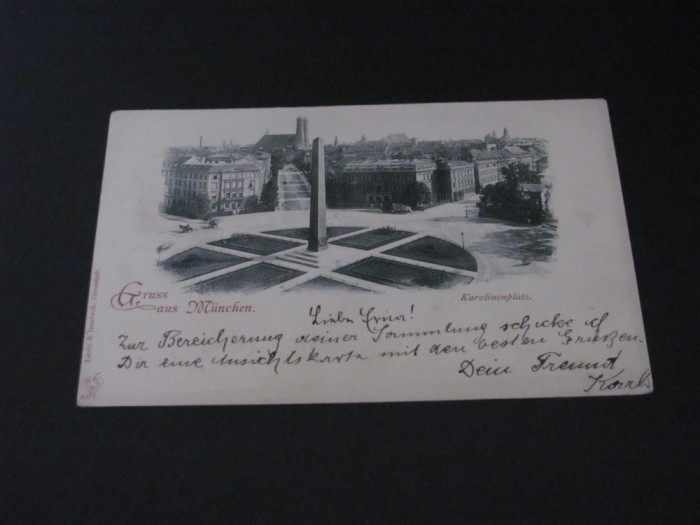 Gruss
aus München.
Karolinenplatz.
Liebe Erna!
Zur Bereicherung deiner Sammlung schicke ich
Dir eine Ansichtskarte mit den besten Grüßen.
Dein Freund